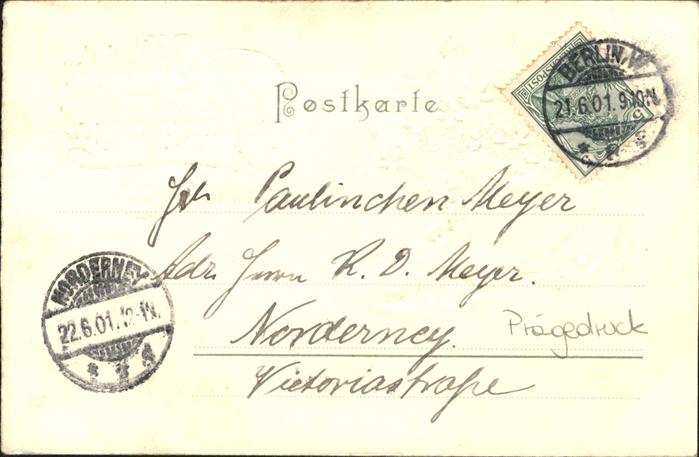 Postkarte
BERLIN, W
21.6.01. 9-10N
Frl. Paulinchen Meyer
Adr. Herrn K. D. Meyer.
Norderney.
Victoriastraße
Prägedruck
NORDERNEY
22.6.01. 12-1N.